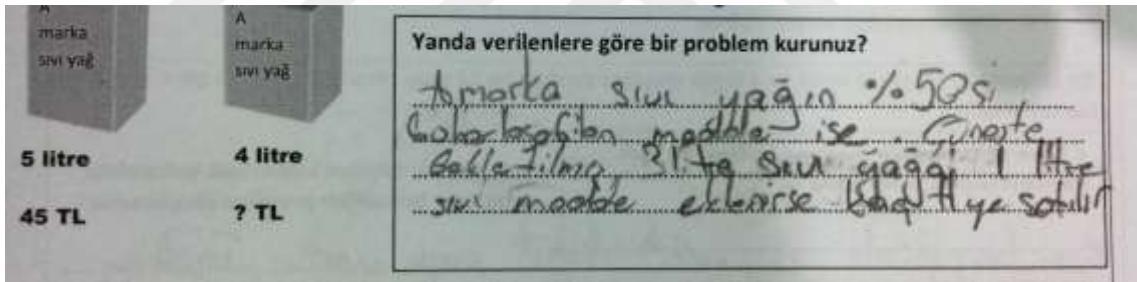 A
marka
sıvı yağ
A
marka
sıvı yağ
5 litre
4 litre
45 TL
? TL
Yanda verilenlere göre bir problem kurunuz?
A marka sıvı yağın %50si
madde ise. Güneşte
3 lite sıvı yağğa 1 litre
sıvı madde eklenirse kaç tl ye satılır